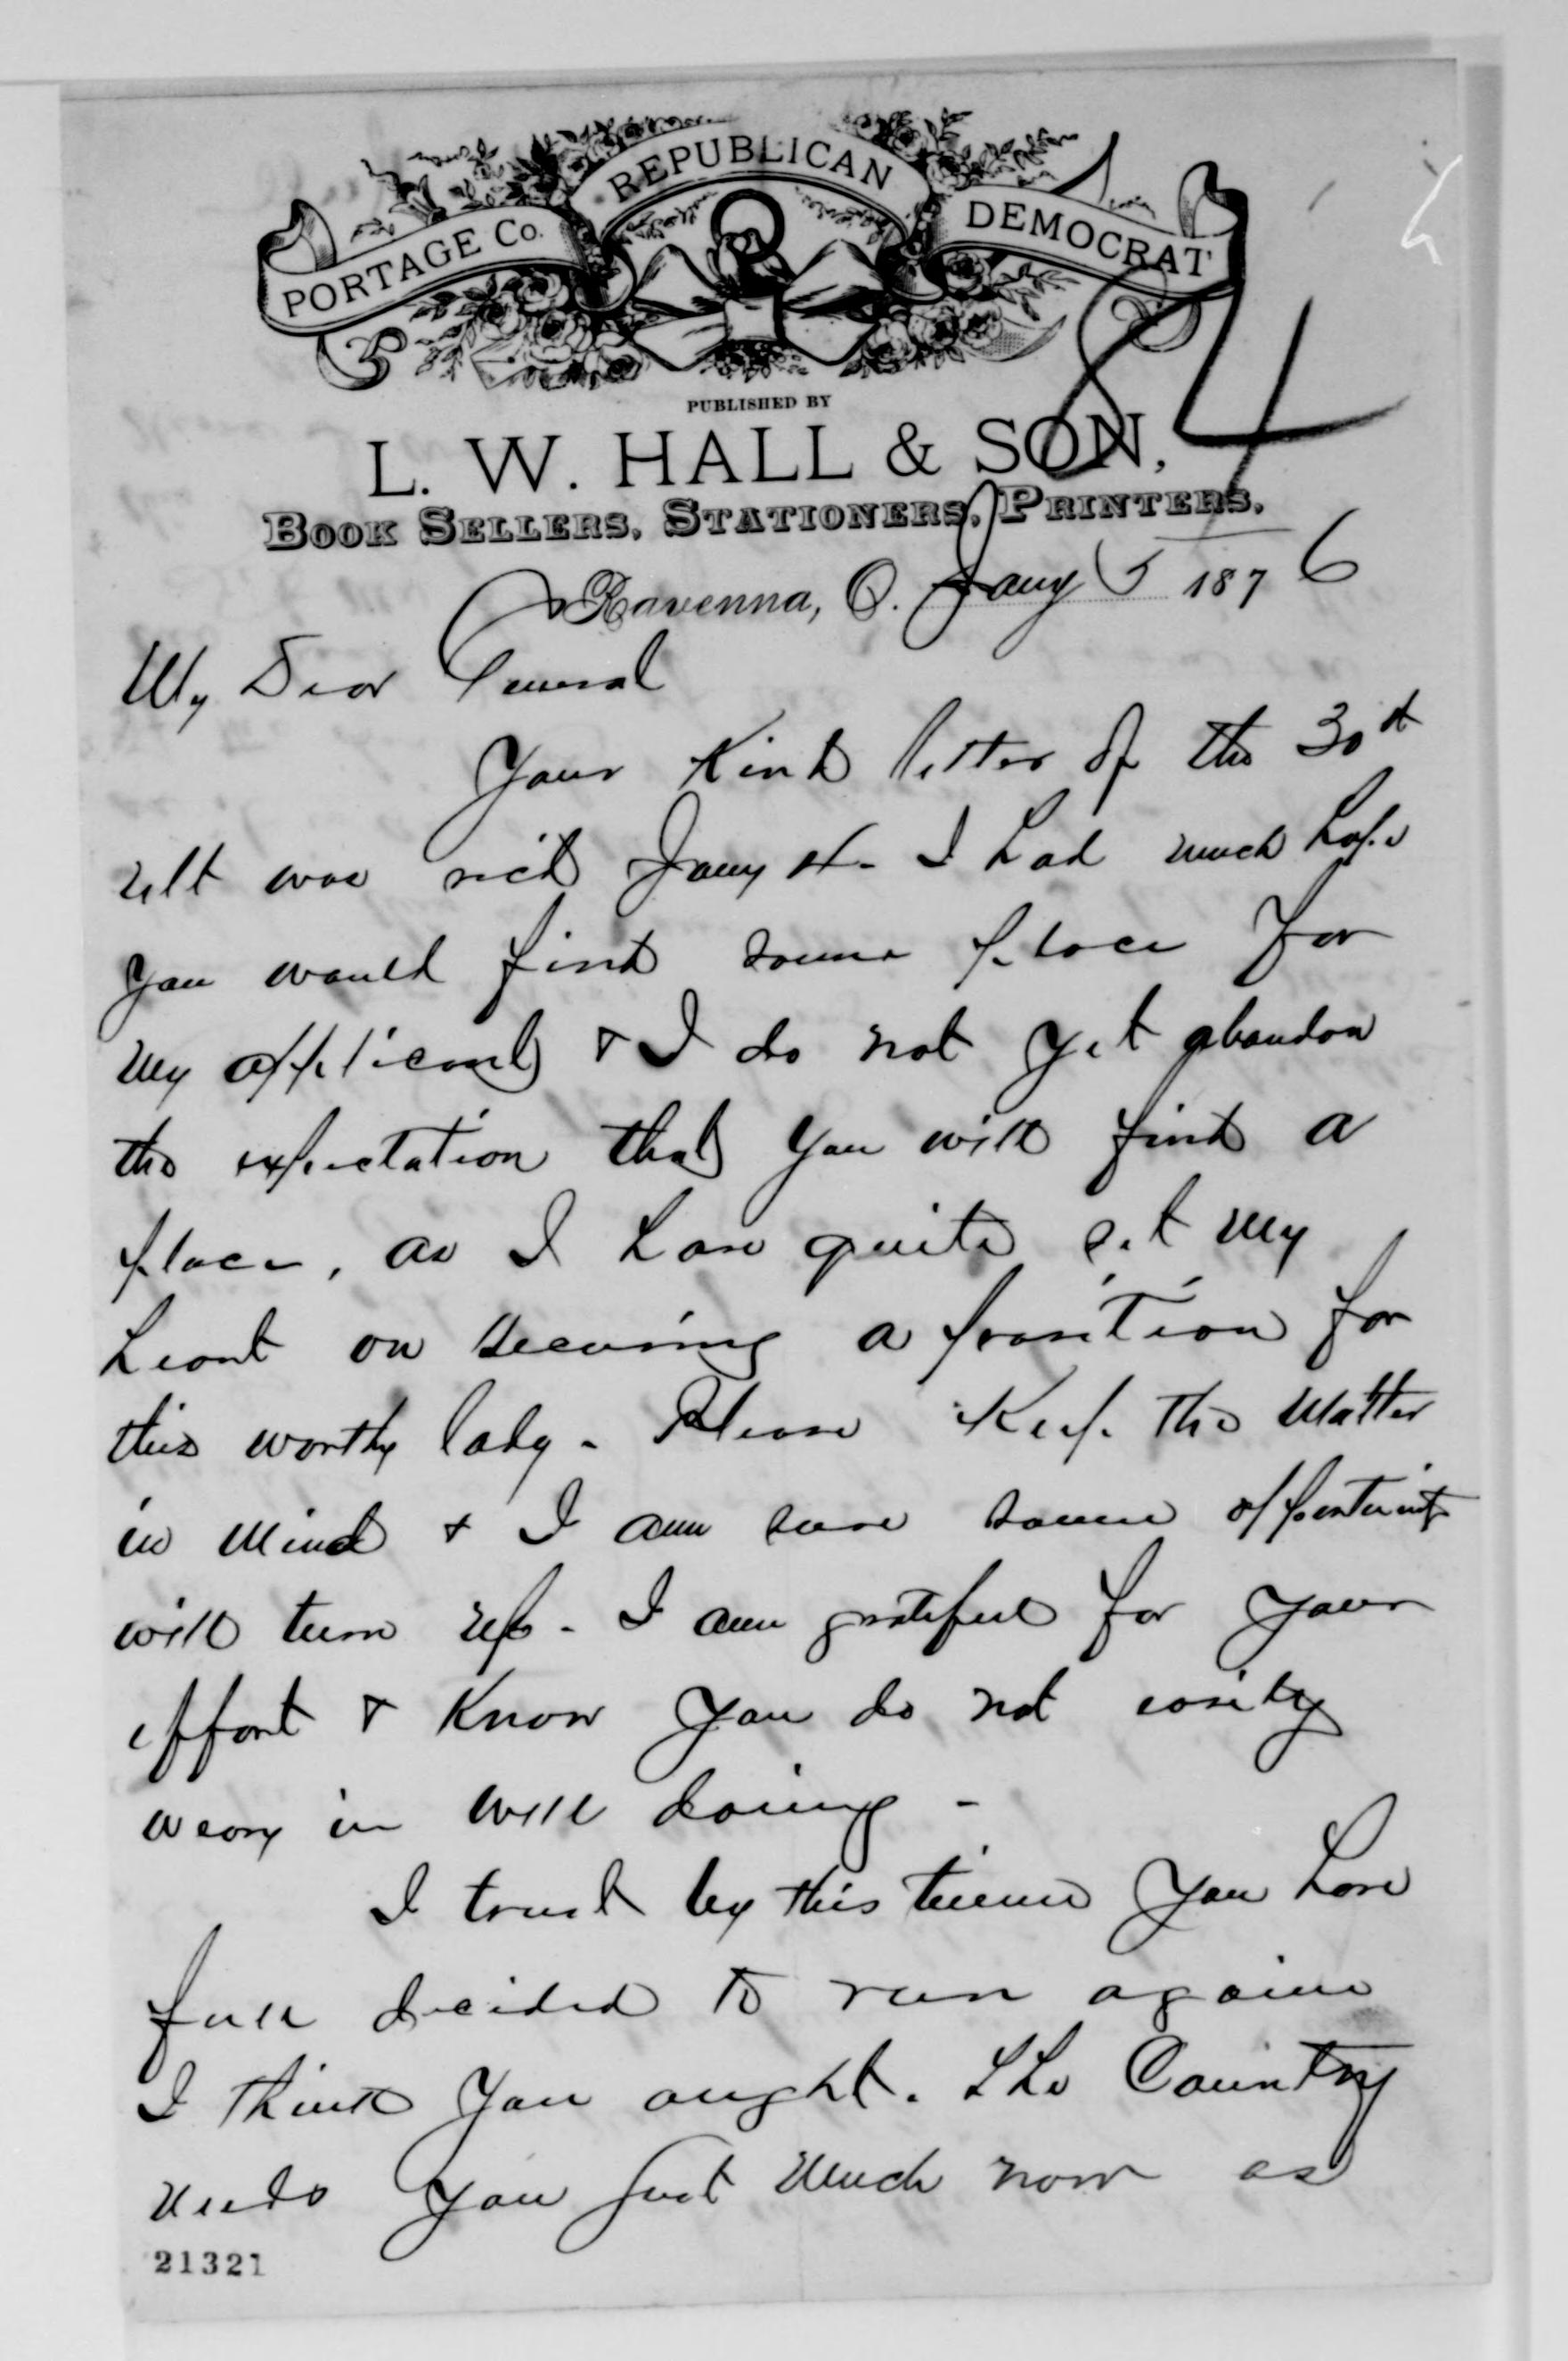 PORTAGE Co. REPUBLICAN DEMOCRAT
84
PUBLISHED BY
L. W. HALL & SON,
BOOK SELLERS, STATIONERS, PRINTERS.
Ravenna, O. Jany 5 1876
My Dear General
Your kind letter of the 30th
ult was recd Jany 4. I had much hope
you would find some place for
my applicant & I do not yet abandon
the expectation that you will find a
place, as I have quite set my
heart on securing a position for
this worthy lady - Please Keep the matter
in mind & I am sure some opportunity
will turn up - I am grateful for your
effort & Know you do not easily
weary in well doing -
I trust by this time you have
full decided to run again
I think you ought. The Country
needs you just much now as
21321